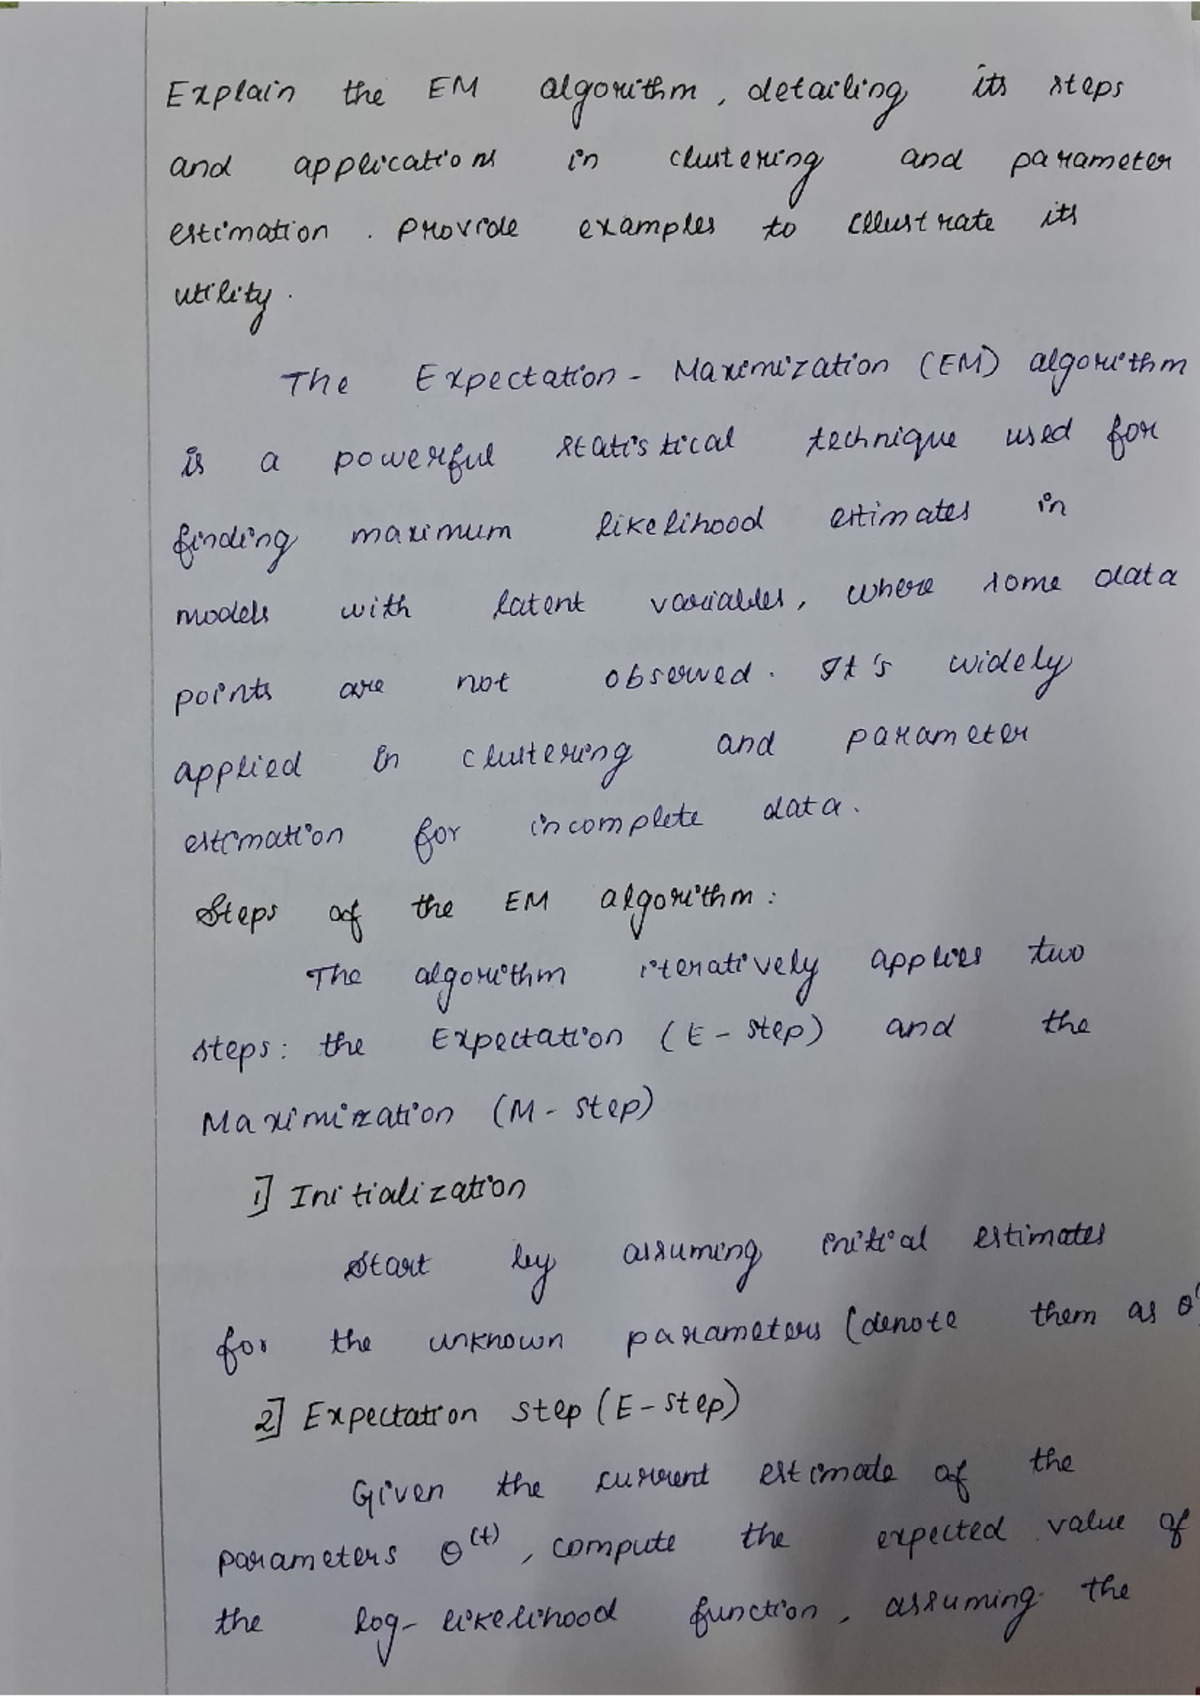 Explain the EM algorithm, detailing its steps
and applications in clustering and parameter
estimation. Provide examples to illustrate its
utility.
The Expectation - Maximization (EM) algorithm
is a powerful statistical technique used for
finding maximum likelihood estimates in
models with latent variables, where some data
points are not observed. It's widely
applied in clustering and parameter
estimation for incomplete data.
Steps of the EM algorithm:
The algorithm iteratively applies two
steps: the Expectation (E - step) and the
Maximization (M - step)
1] Initialization
Start by assuming initial estimates
for the unknown parameters (denote them as θ
2] Expectation step (E - step)
Given the current estimate of the
parameters θ^(t), compute the expected value of
the log-likelihood function, assuming the